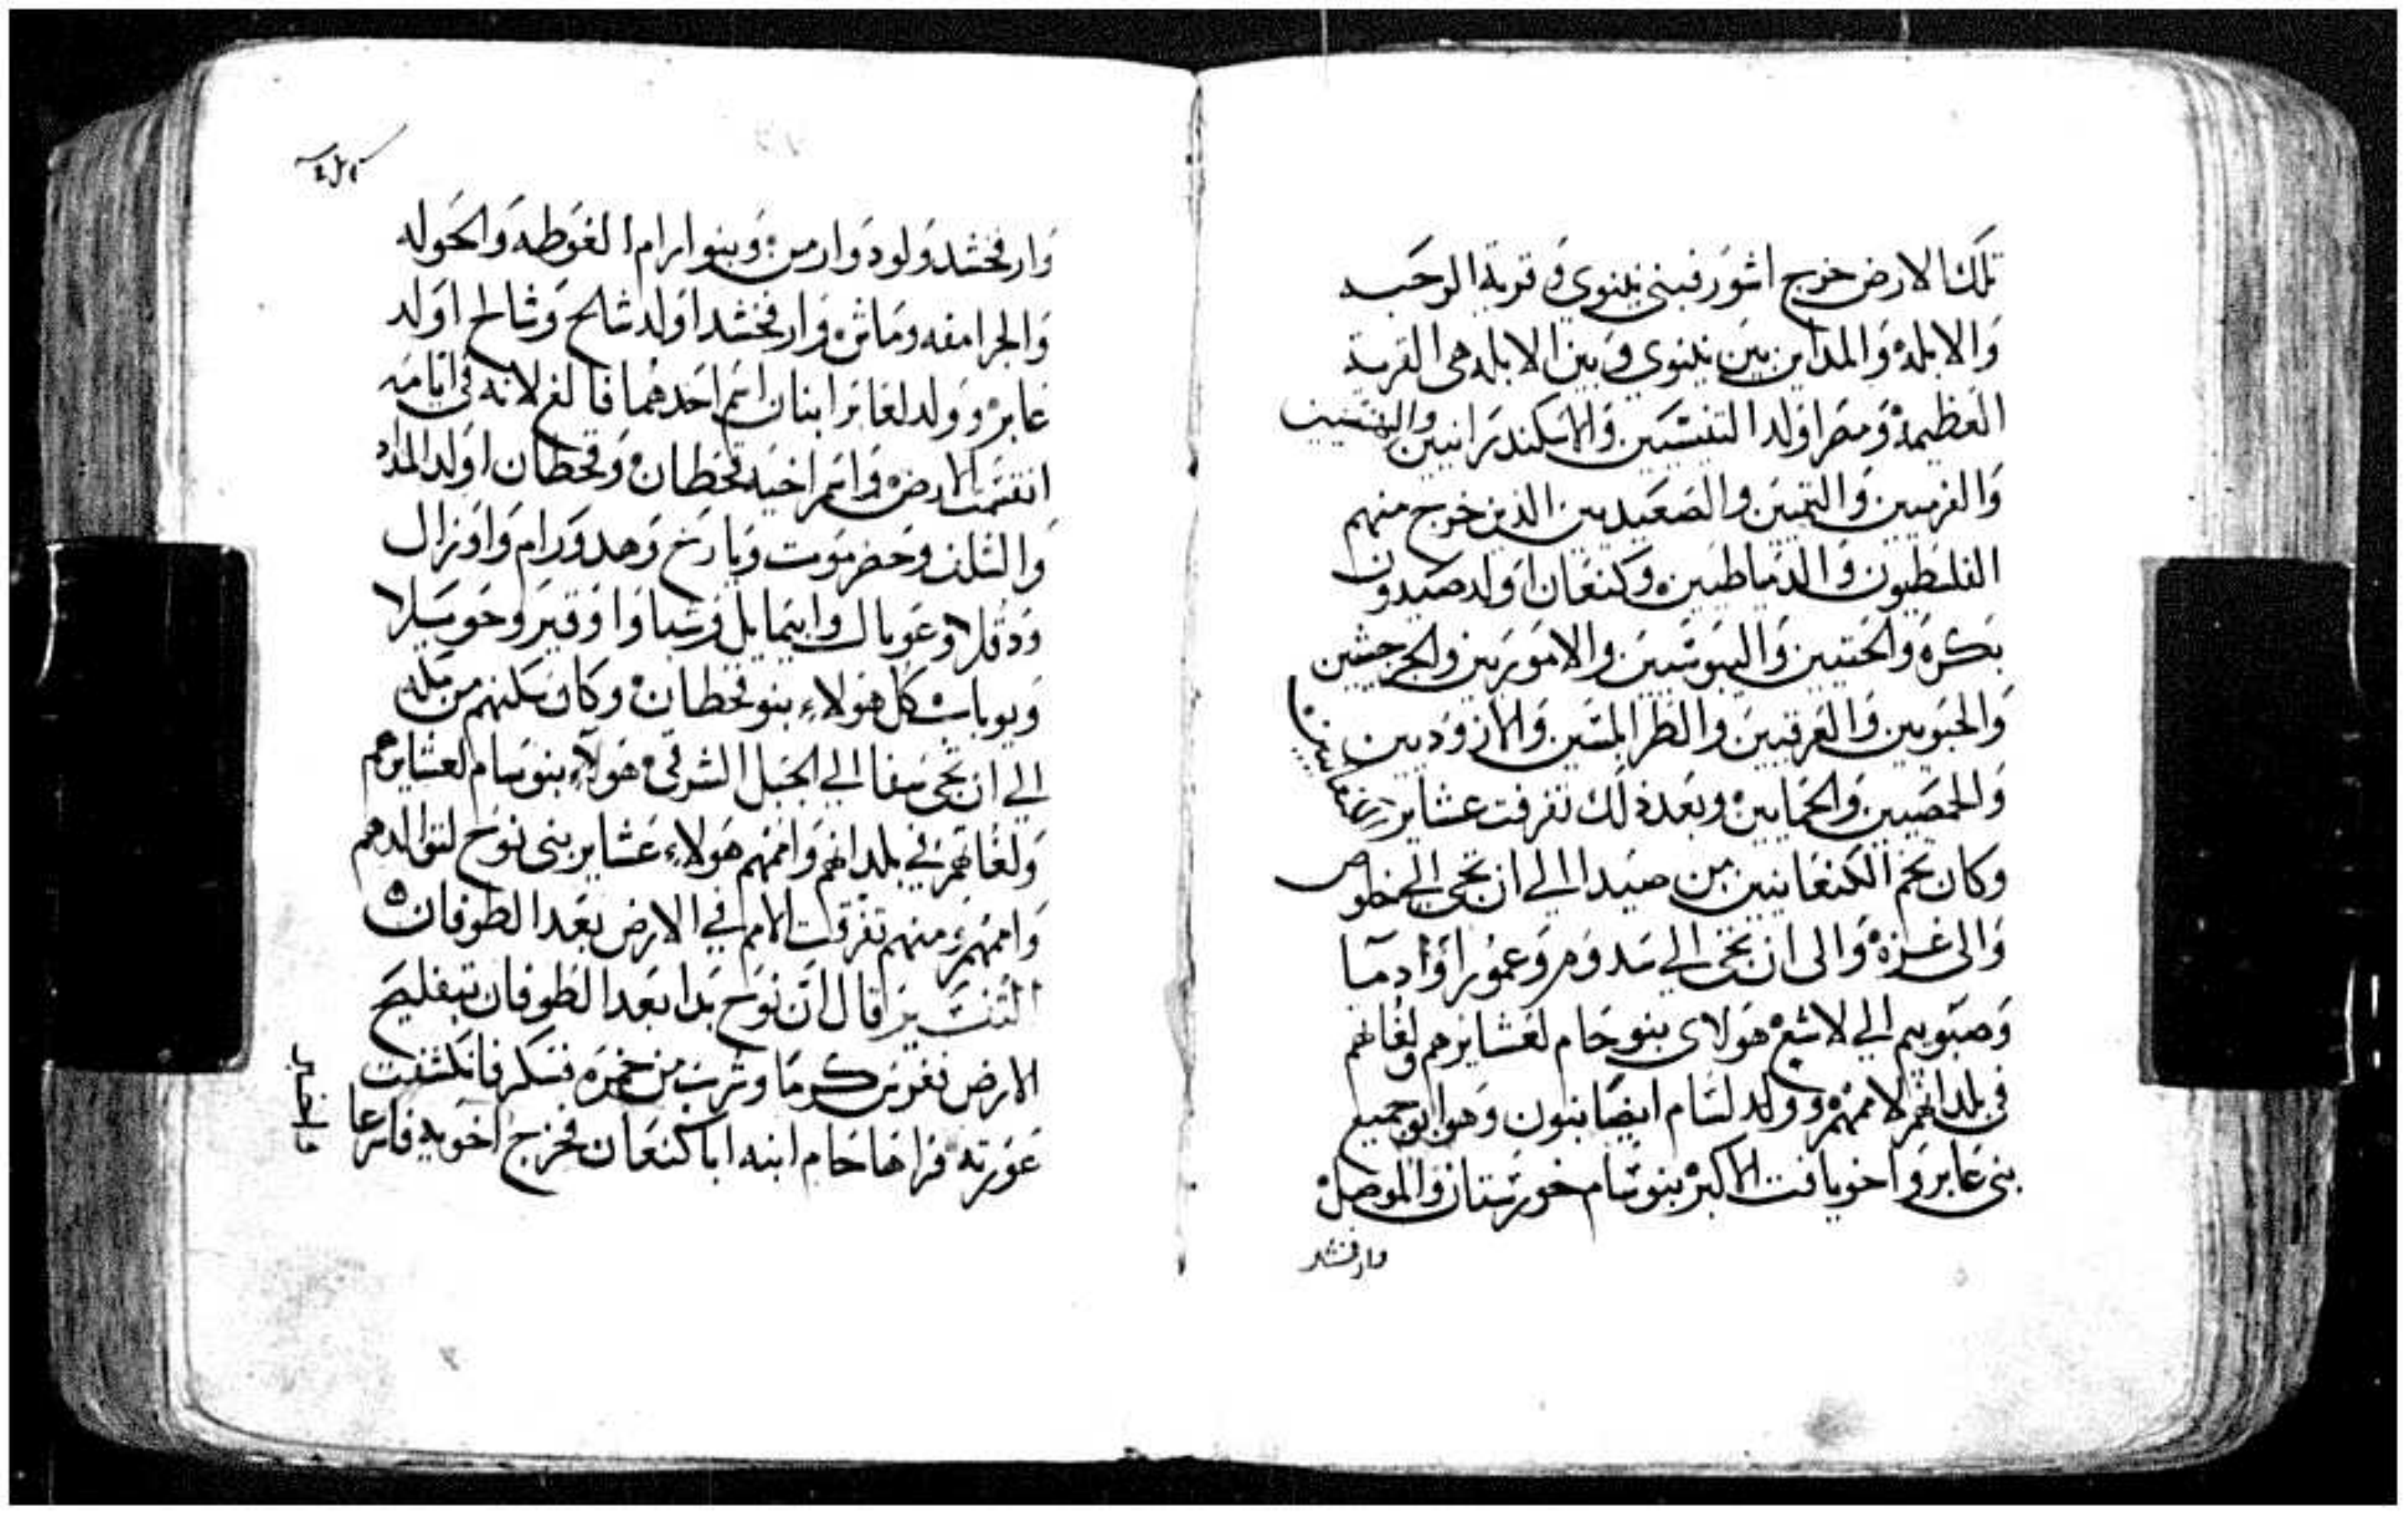 تلك الارض خرج اثور فبنى نينوي و قرية الرحبه
والابله والمداين بين نينوي وبين الابله هى القرية
العظيمة ومصر اولد التنسيين والاسكندرانيين والبهنسيين
والفرميين والتميين والصعيديين الذين خرج منهم
الفلسطيون والدمياطيين وكنعان اولد صيدون
بكره والحتيين واليبوسيين والاموريين والجرجشيين
والحبويين والعرقيين والطرابلسيين والازوديين
والحمصيين والحمايين وبعد ذلك تفرقت عشاير الكنعانيين
وكان تخم الكنعانيين من صيدا الي ان تجي الي الخلوص
والى غزة والى ان تجي الي سدوم وعمورا وادما
وصبويم الي لاشع هولاى بنو حام لعشايرهم ولغاتهم
في بلدانهم لاممهم وولد لسام ايضا بنون وهو ابو جميع
بنى عابر واخو يافت الاكبر بنو سام خورستان والموصل
وارفخشد
وارفخشد ولود وارمن وبنو ارام الغوطه والحوله
والجرامقه وماش وارفخشد اولد شالح وشالح اولد
عابر وولد لعابر ابنان اسم احدهما فالغ لانه في ايامه
انقسمت الارض واسم اخيه قحطان وقحطان اولد المداد
والشلف وحضرموت ويارخ وهدورام واوزال
ودقلا وعوبال وابيمايل وشبا واوفير وحويلا
ويوباب كل هولاء بنو قحطان وكان سكنهم من مكه
الي ان تجي سفا الي الجبل الشرقي هولاء بنو سام لعشايرهم
ولغاتهم في بلدانهم واممهم هولاء عشاير بنى نوح لتوالدهم
واممهم ومنهم تفرقت الامم في الارض بعد الطوفان
التفسير قال ان نوح بدا بعد الطوفان بتفليح
الارض فغرس كرما وشرب من خمره فسكر فانكشفت
عورته فراها حام ابنه ابا كنعان فخرج اخويه فاسرعا